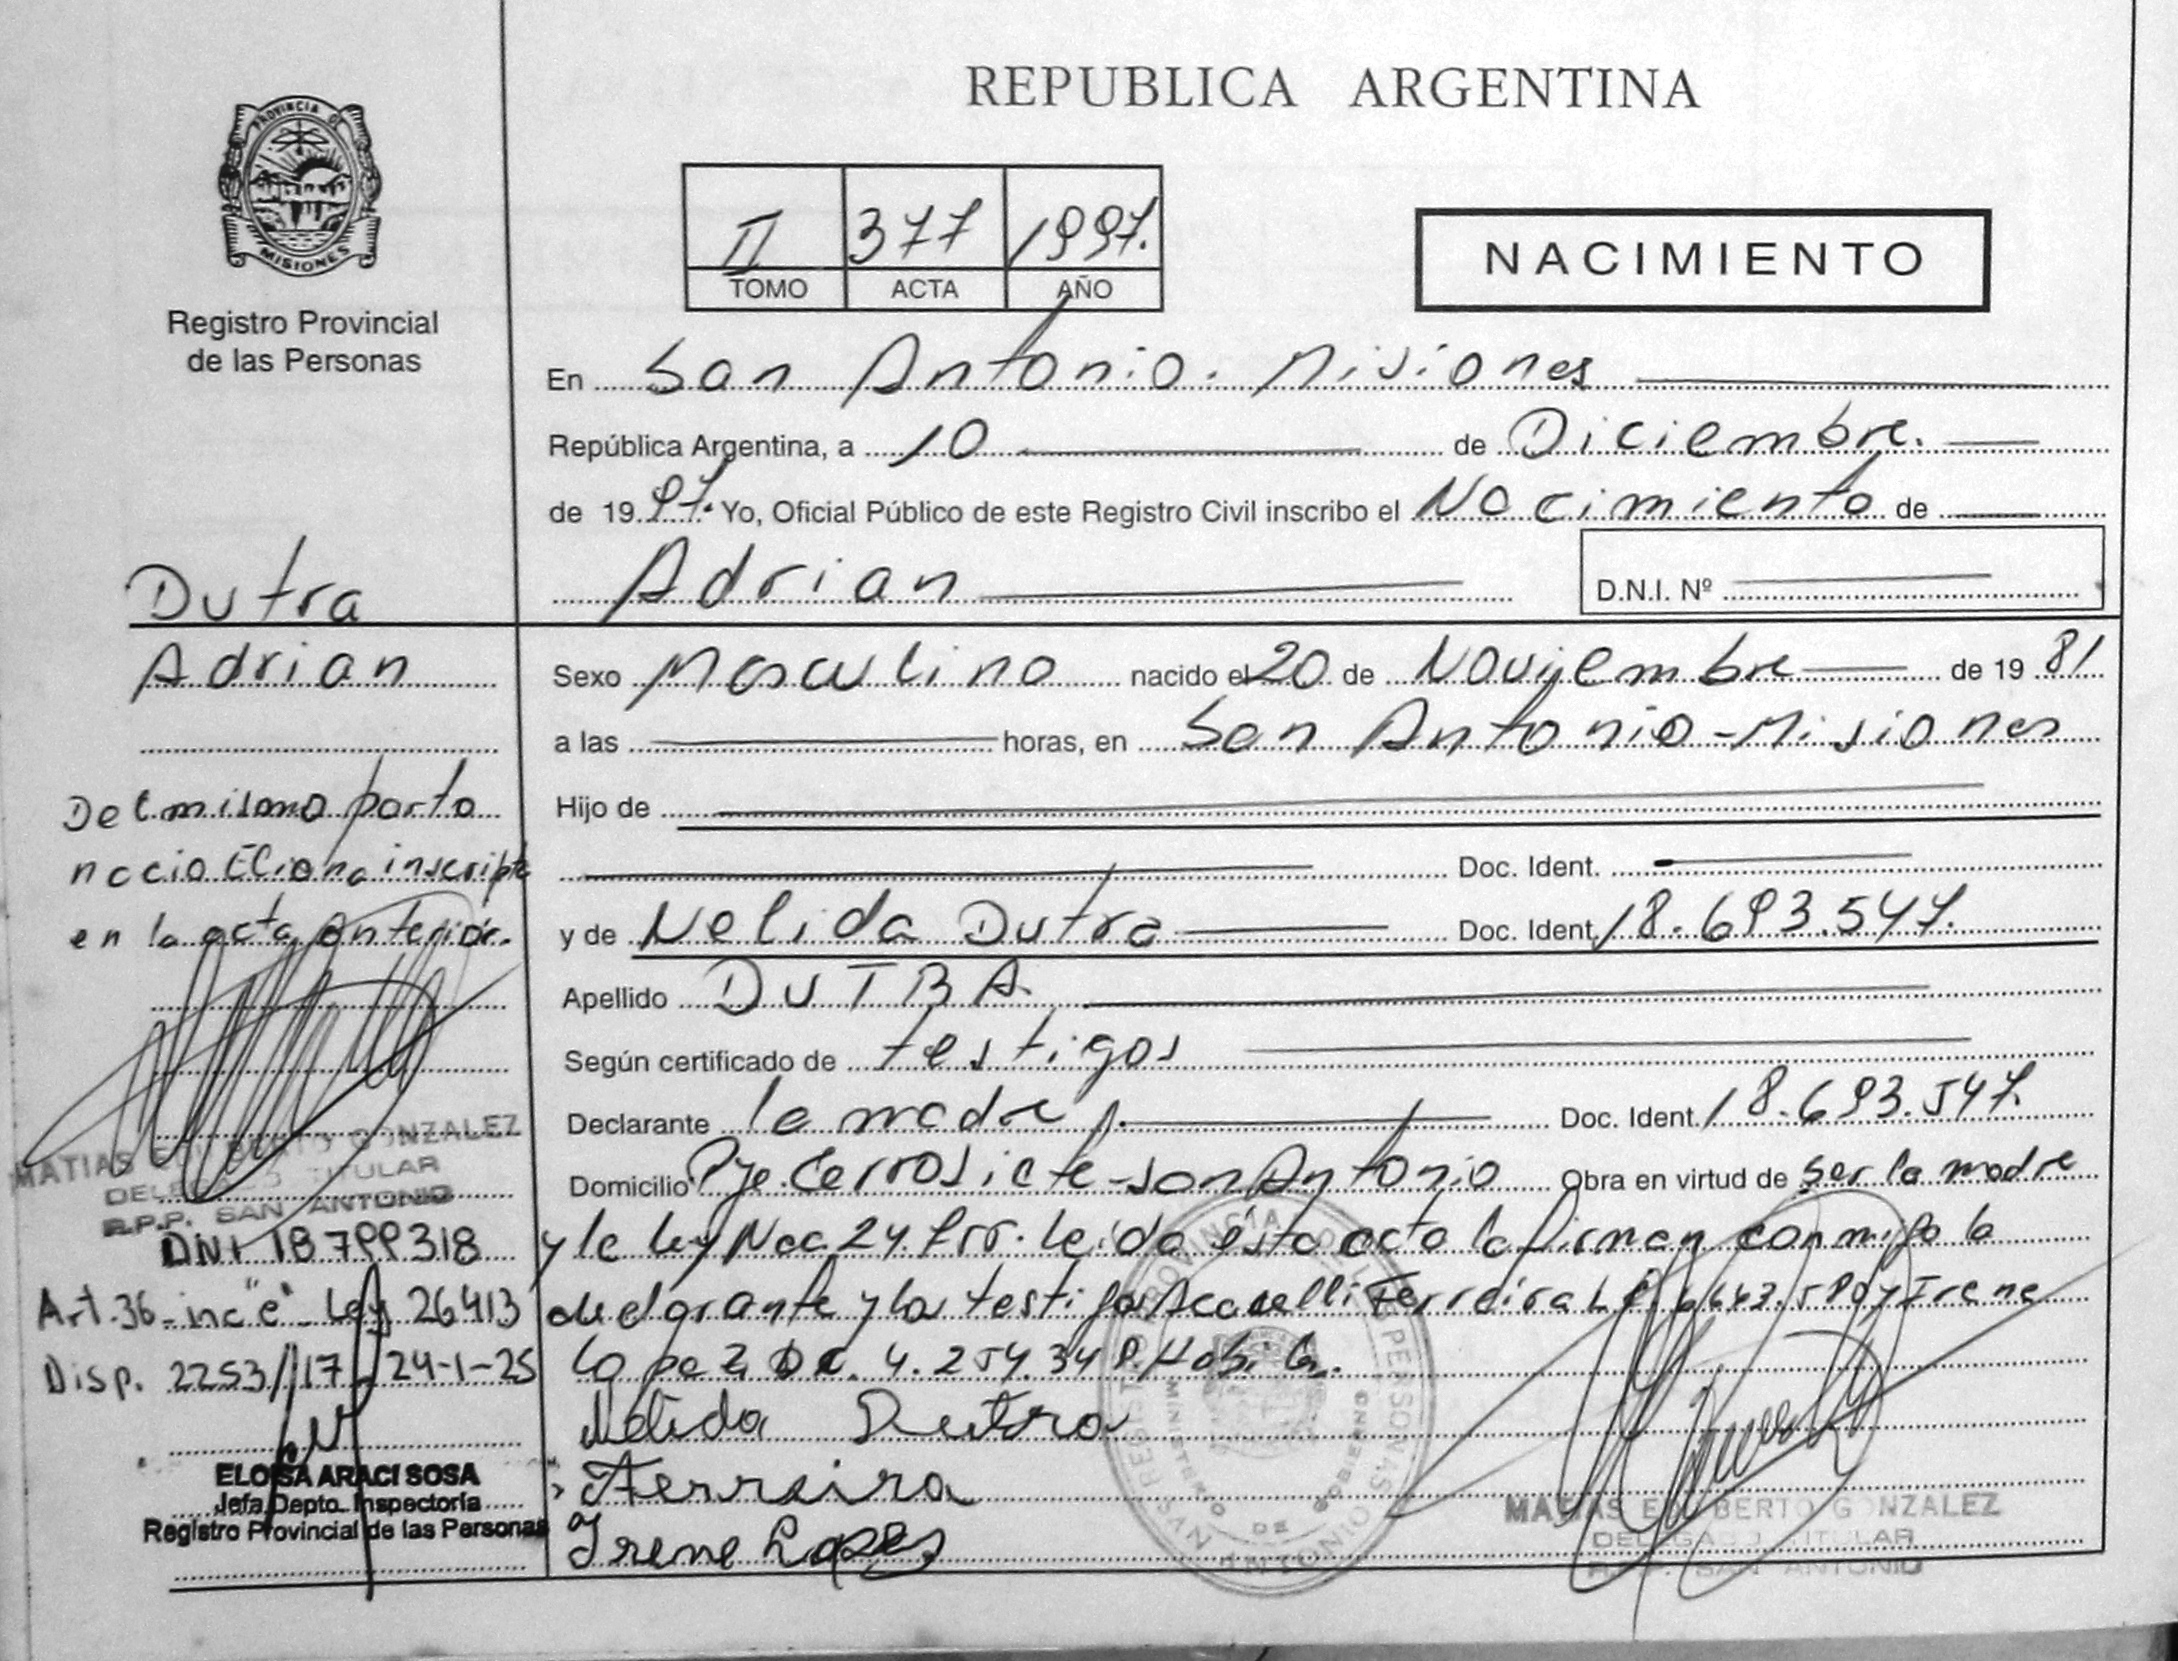 REPUBLICA ARGENTINA
PROVINCIA DE
MISIONES
Registro Provincial
de las Personas
II 377 1997.
TOMO ACTA AÑO
NACIMIENTO
En San Antonio. Misiones
República Argentina, a 10 de Diciembre.
de 1997. Yo, Oficial Público de este Registro Civil inscribo el Nacimiento de
Adrian D.N.I. Nº
Dutra
Adrian
Del mismo parto
nacio Eliana inscripta
en la acta anterior.
MATIAS EDILBERTO GONZALEZ
DELEGADO TITULAR
R.P.P. SAN ANTONIO
DNI 18799318
Art. 36 - inc "e" - Ley 26413
Disp. 2253//17 24-1-25
ELOISA ARACI SOSA
Jefa Depto. Inspectoría
Registro Provincial de las Personas
Sexo Masculino nacido el 20 de Noviembre de 19 81
a las horas, en San Antonio - Misiones
Hijo de
Doc. Ident.
y de Nelida Dutra Doc. Ident. 18.693.547.
Apellido DUTRA
Según certificado de testigos
Declarante la madre Doc. Ident. 18.693.547.
Domicilio Pje. Cerro Siete - San Antonio Obra en virtud de ser la madre
y la ley Nac. 24. Leida esta acta la firman conmigo la
declarante y los testigos Ferreira y Irene
Lopez 4.254.34
Nelida Dutra
Ferreira
Irene Lopez
REGISTRO PROVINCIAL DE LAS PERSONAS
MINISTERIO DE GOBIERNO
SAN ANTONIO
MATIAS EDILBERTO GONZALEZ
DELEGADO TITULAR
R.P.P. SAN ANTONIO